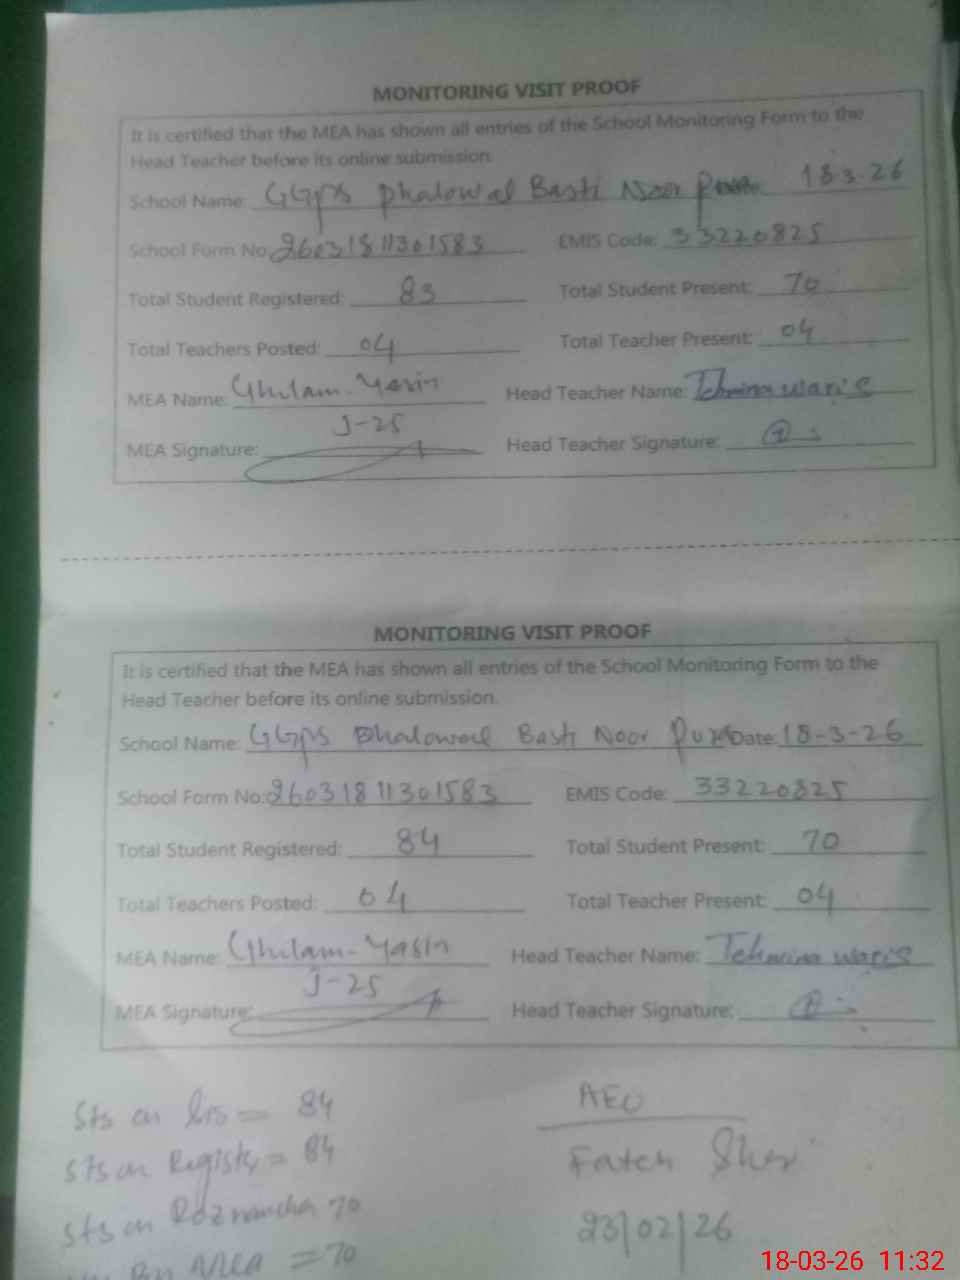 MONITORING VISIT PROOF
It is certified that the MEA has shown all entries of the School Monitoring Form to the
Head Teacher before its online submission.
School Name: GGPS Dhalowal Basti Noor Pur 18-3-26
School Form No: 26031811301583 EMIS Code: 33220825
Total Student Registered: 83 Total Student Present: 70
Total Teachers Posted: 04 Total Teacher Present: 04
MEA Name: Ghulam-Yasin Head Teacher Name: Tehmina waris
J-25
MEA Signature: Head Teacher Signature:
MONITORING VISIT PROOF
It is certified that the MEA has shown all entries of the School Monitoring Form to the
Head Teacher before its online submission.
School Name: GGPS Dhalowal Basti Noor Pur Date: 18-3-26
School Form No: 26031811301583 EMIS Code: 33220825
Total Student Registered: 84 Total Student Present: 70
Total Teachers Posted: 04 Total Teacher Present: 04
MEA Name: Ghulam-Yasin Head Teacher Name: Tehmina waris
J-25
MEA Signature: Head Teacher Signature:
Sts on Sis = 84
Sts on Register = 84
Sts on Roznamcha 70
By MEA = 70
AEO
Fateh Sher
23/02/26
18-03-26 11:32